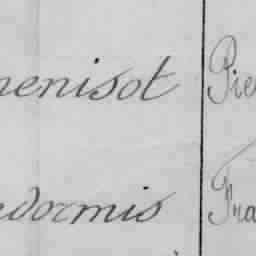 enisot Pie
dormis Fra